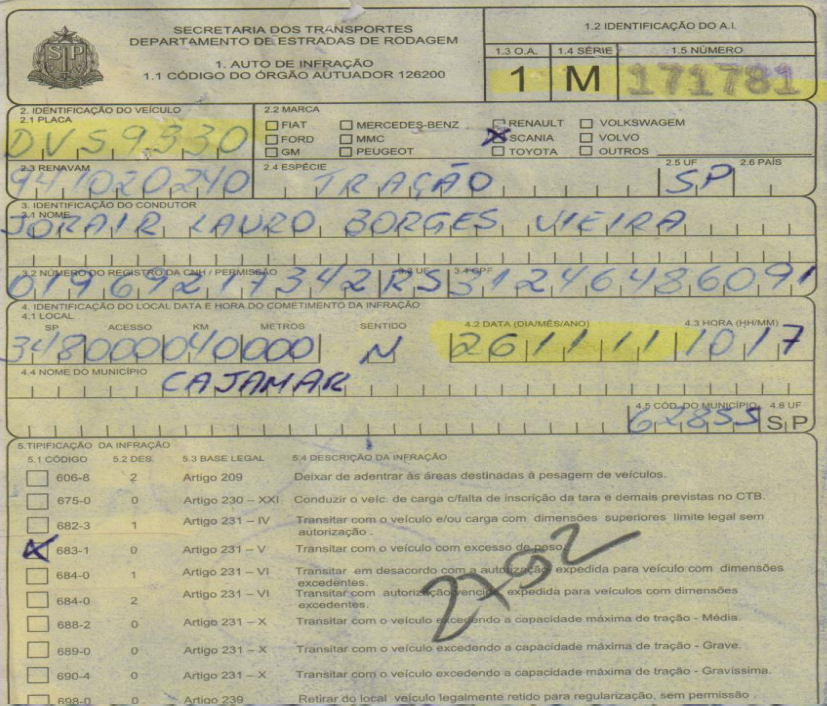 SECRETARIA DOS TRANSPORTES
DEPARTAMENTO DE ESTRADAS DE RODAGEM
1. AUTO DE INFRAÇÃO
1.1 CÓDIGO DO ÓRGÃO AUTUADOR 126200
1.2 IDENTIFICAÇÃO DO A.I.
1.3 O.A. 1.4 SÉRIE 1.5 NÚMERO
1 M 171781
2. IDENTIFICAÇÃO DO VEÍCULO
2.1 PLACA
DVS9330
2.2 MARCA
FIAT MERCEDES-BENZ RENAULT VOLKSWAGEM
FORD MMC SCANIA VOLVO
GM PEUGEOT TOYOTA OUTROS
2.3 RENAVAM 2.4 ESPÉCIE 2.5 UF 2.6 PAÍS
941020240 TRAÇÃO SP
3. IDENTIFICAÇÃO DO CONDUTOR
3.1 NOME
JORAIR LAURO BORGES VIEIRA
3.2 NÚMERO DO REGISTRO DA CNH / PERMISSÃO 3.3 UF 3.4 CPF
01969217342 RS 31246486091
4. IDENTIFICAÇÃO DO LOCAL DATA E HORA DO COMETIMENTO DA INFRAÇÃO
4.1 LOCAL
SP ACESSO KM METROS SENTIDO 4.2 DATA (DIA/MÊS/ANO) 4.3 HORA (HH/MM)
348 000 040 000 N 26 11 11 10 17
4.4 NOME DO MUNICÍPIO
CAJAMAR
4.5 CÓD. DO MUNICÍPIO 4.6 UF
62855 SP
5. TIPIFICAÇÃO DA INFRAÇÃO
5.1 CÓDIGO 5.2 DES. 5.3 BASE LEGAL 5.4 DESCRIÇÃO DA INFRAÇÃO
606-8 2 Artigo 209 Deixar de adentrar às áreas destinadas à pesagem de veículos.
675-0 0 Artigo 230 – XXI Conduzir o veíc: de carga c/falta de inscrição da tara e demais previstas no CTB.
682-3 1 Artigo 231 – IV Transitar com o veículo e/ou carga com dimensões superiores limite legal sem
autorização .
683-1 0 Artigo 231 – V Transitar com o veículo com excesso de peso.
684-0 1 Artigo 231 – VI Transitar em desacordo com a autorização expedida para veículo com dimensões
excedentes.
684-0 2 Artigo 231 – VI Transitar com autorização vencida expedida para veículos com dimensões
excedentes.
2702
688-2 0 Artigo 231 – X Transitar com o veículo excedendo a capacidade máxima de tração - Média.
689-0 0 Artigo 231 – X Transitar com o veículo excedendo a capacidade máxima de tração - Grave.
690-4 0 Artigo 231 – X Transitar com o veículo excedendo a capacidade máxima de tração - Gravíssima.
698-0 0 Artigo 239 Retirar do local veículo legalmente retido para regularização, sem permissão .